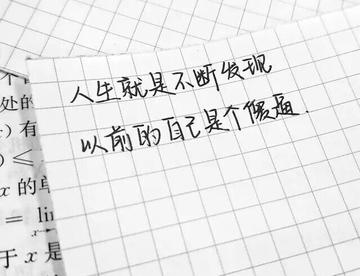 人生就是不断发现
以前的自己是个傻逼.
处的
) 有
) ≤
x 的单
= lim
x→
于 x 是